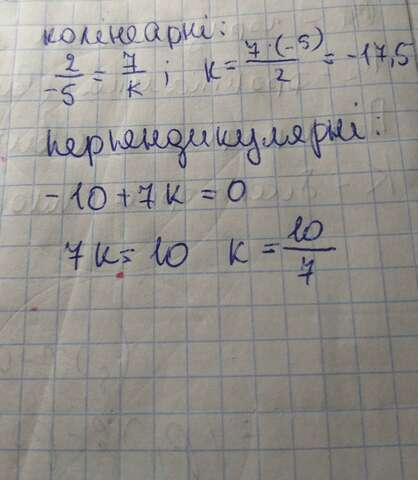 колінеарні:
2/-5 = 7/k ; k = 7·(-5)/2 = -17,5
перпендикулярні:
-10 + 7k = 0
7k = 10 k = 10/7